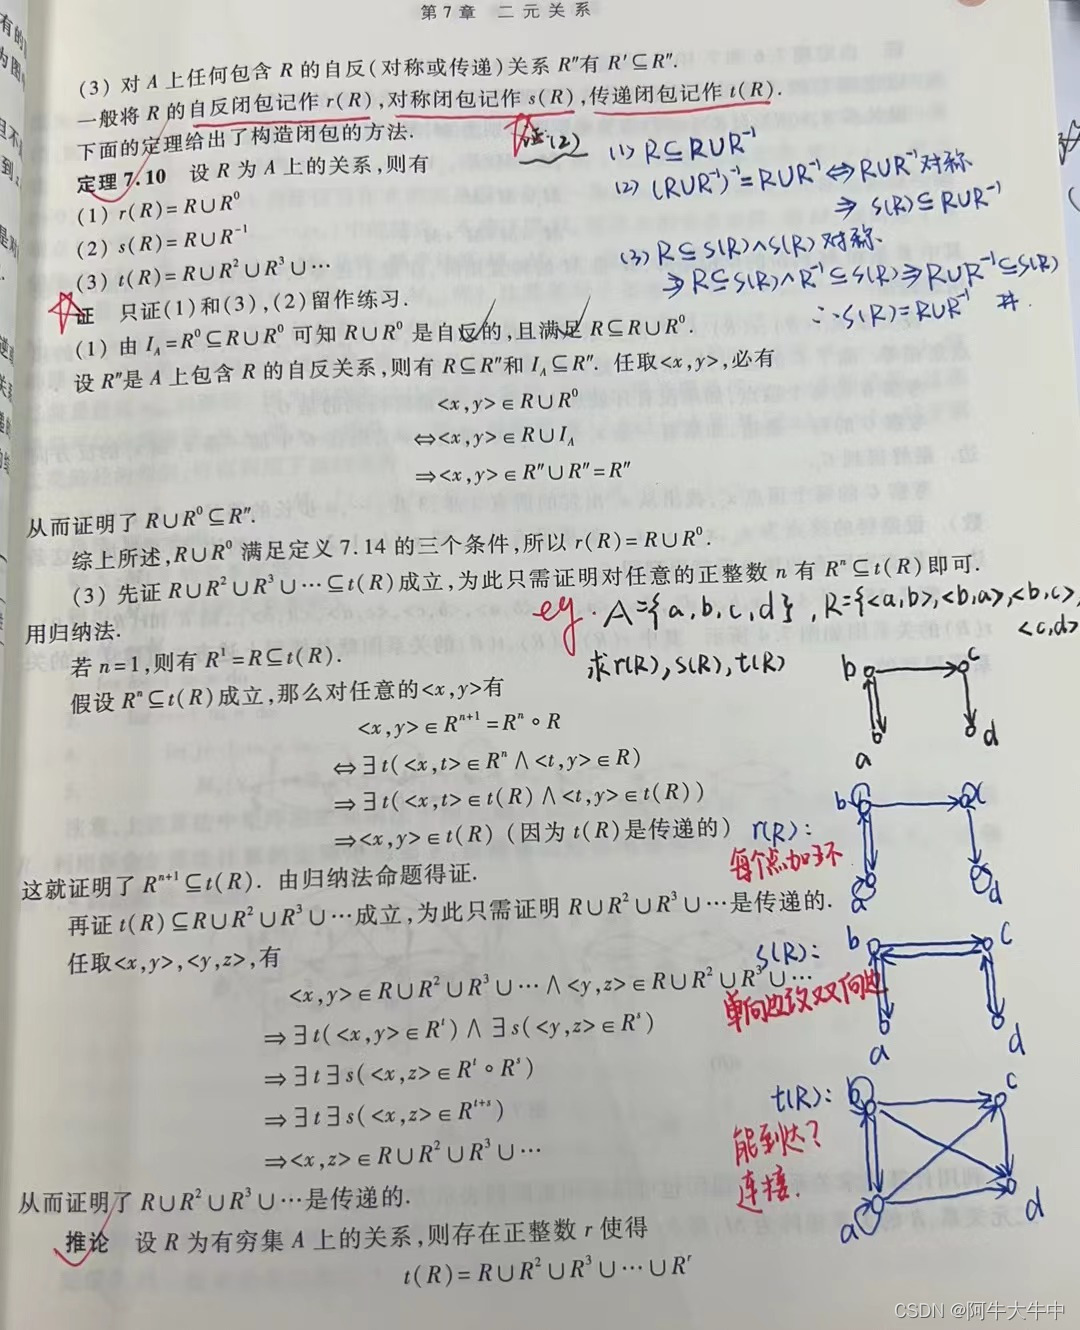 第7章 二元关系
(3) 对 A 上任何包含 R 的自反(对称或传递)关系 R″有 R′⊆R″.
一般将 R 的自反闭包记作 r(R),对称闭包记作 s(R),传递闭包记作 t(R).
下面的定理给出了构造闭包的方法.
定理 7.10 设 R 为 A 上的关系,则有
(1) r(R)=R∪R⁰
(2) s(R)=R∪R⁻¹
(3) t(R)=R∪R²∪R³∪⋯
证(2)
(1) R⊆R∪R⁻¹
(2) (R∪R⁻¹)⁻¹=R∪R⁻¹⇔R∪R⁻¹对称
⇒ s(R)⊆R∪R⁻¹
(3) R⊆s(R)∧s(R)对称.
⇒R⊆s(R)∧R⁻¹⊆s(R)⇒R∪R⁻¹⊆s(R)
∴s(R)=R∪R⁻¹ #
证 只证(1)和(3),(2)留作练习.
(1) 由 I_A=R⁰⊆R∪R⁰ 可知 R∪R⁰ 是自反的,且满足 R⊆R∪R⁰.
设 R″是 A 上包含 R 的自反关系,则有 R⊆R″和 I_A⊆R″. 任取<x,y>,必有
<x,y>∈R∪R⁰
⇔<x,y>∈R∪I_A
⇒<x,y>∈R″∪R″=R″
从而证明了 R∪R⁰⊆R″.
综上所述,R∪R⁰ 满足定义 7.14 的三个条件,所以 r(R)=R∪R⁰.
(3) 先证 R∪R²∪R³∪⋯⊆t(R)成立,为此只需证明对任意的正整数 n 有 Rⁿ⊆t(R)即可.
用归纳法.
eg. A={a,b,c,d}, R={<a,b>,<b,a>,<b,c>,
<c,d>
求r(R),s(R),t(R)
若 n=1,则有 R¹=R⊆t(R).
假设 Rⁿ⊆t(R)成立,那么对任意的<x,y>有
<x,y>∈Rⁿ⁺¹=Rⁿ∘R
⇔∃t(<x,t>∈Rⁿ∧<t,y>∈R)
⇒∃t(<x,t>∈t(R)∧<t,y>∈t(R))
⇒<x,y>∈t(R) (因为 t(R)是传递的)
b c
a d
r(R):
每个点加环
b c
a d
这就证明了 Rⁿ⁺¹⊆t(R). 由归纳法命题得证.
再证 t(R)⊆R∪R²∪R³∪⋯成立,为此只需证明 R∪R²∪R³∪⋯是传递的.
任取<x,y>,<y,z>,有
<x,y>∈R∪R²∪R³∪⋯∧<y,z>∈R∪R²∪R³∪⋯
⇒∃t(<x,y>∈Rᵗ)∧∃s(<y,z>∈Rˢ)
⇒∃t∃s(<x,z>∈Rᵗ∘Rˢ)
⇒∃t∃s(<x,z>∈Rᵗ⁺ˢ)
⇒<x,z>∈R∪R²∪R³∪⋯
s(R):
单向边改双向边
b c
a d
t(R):
能到达?
连接.
b c
a d
从而证明了 R∪R²∪R³∪⋯是传递的.
推论 设 R 为有穷集 A 上的关系,则存在正整数 r 使得
t(R)=R∪R²∪R³∪⋯∪Rʳ
CSDN @阿牛大牛中